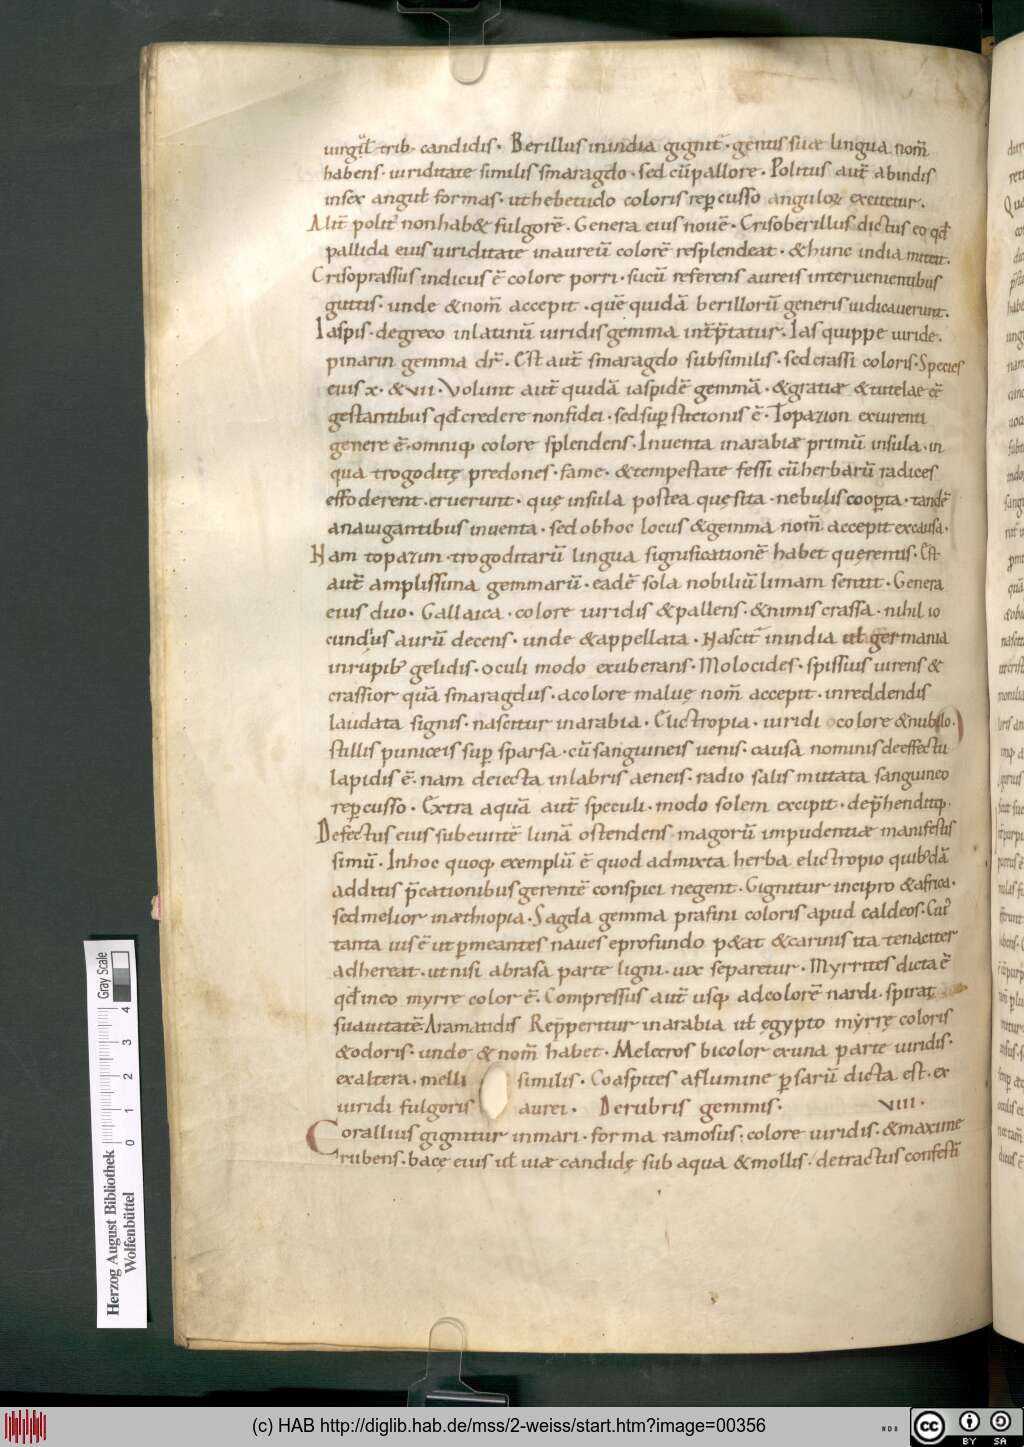 uirgul̃ trib· candidis· Berillus inindia gignit̃· gentis suæ lingua nom̃
habens· uiriditate similis smaragdo· sed cũ pallore· Politus aut̃ abindis
insex angul̃ formas· uthebetudo coloris rep̱cusso anguloꝝ excitetur.
Alit̃ polit᷒ nonhab& fulgorẽ· Genera eius nouẽ· Crisoberillus dictus eo qd̃
pallida eius uiriditate inaureũ colorẽ resplendeat· &hunc india mittit.
Crisoprassus indicus ẽ colore porri· sucũ referens aureis interuenientibus
guttis· unde &nom̃ accepit· quẽ quidã berillorũ generis iudicauerunt.
Iaspis· degreco inlatinũ uiridis gemma int̃p̃tatur· Ias quippe uiride·
pinarin gemma dr̃· Est aut̃ smaragdo subsimilis· sedcrassi coloris· Species
eius x· &vii· Volunt aut̃ quidã iaspidẽ gemmã· &gratiæ &tutelae eẽ
gestantibus qd̃ credere nonfidei· sedsup̱stitionis ẽ· Topazion exuirenti
genere ẽ· omniq; colore splendens· Inuenta inarabiæ primũ insula· in
qua trogoditę predones· fame· &tempestate fessi cũ herbarũ radices
effoderent· eruerunt· quę insula postea quęsita· nebulis coop̱ta· tandẽ
anauigantibus inuenta· sed obhoc locus &gemma nom̃ accepit excausa·
Nam topazin· trogoditarũ lingua significationẽ habet quęrentis· Est
aut̃ amplissima gemmarũ· eadẽ sola nobiliũ limam sentit· Genera
eius duo· Gallaica· colore uiridis &pallens· &nimis crassa· nihil io
cundius aurũ decens· unde &appellata· Nascit̃ inindia ul̃ germania
inrupib; gelidis· oculi modo exuberans· Molocides· spissius uirens &
crassior quã smaragdus· acolore maluę nom̃ accepit· inreddendis
laudata signis· nascitur inarabia· Elictropia· uiridi colore &nubilo·
stillis puniceis sup̱ sparsa· cũ sanguineis uenis· causa nominis deeffectu
lapidis ẽ· nam deiecta inlabris aeneis· radio salis mutata sanguineo
rep̱cusso· Extra aquã aut̃ speculi· modo solem excipit· dep̃henditq;
Defectus eius subeuntẽ lunã ostendens· magorũ impudentiæ manifestis
simũ· Inhoc quoq; exemplũ ẽ quod admixta herba elictropio quibᷤdã
additis p̃cationibus gerentẽ conspici negent· Gignitur incipro &africa·
sedmelior inæthiopia· Sagda gemma prasini coloris apud caldeos· Cui᷒
tanta uis ẽ ut p̱meantes naues eprofundo p&at &carinis ita tenaciter
adhereat· utnisi abrasa parte ligni· uix separetur· Myrrites dicta ẽ
qd̃ ineo myrre color ẽ· Compressus aut̃ usq; adcolorẽ nardi· spirat
suauitatẽ· Aramatidis Rep̱peritur inarabia ul̃ ęgypto myrrę coloris
&odoris· unde & nom̃ habet· Melecros bicolor exuna parte uiridis·
exaltera· melli similis· Coaspites aflumine p̱sarũ dicta est· ex
uiridi fulgoris aurei· Derubris gemmis· VIII·
Corallius gignitur inmari· forma ramosus· colore uiridis· &maxime
rubens· bacę eius ul̃ uiæ candidę sub aqua &mollis· detractus confestĩ
Herzog August Bibliothek
Wolfenbüttel
Gray Scale
0 1 2 3 4
(c) HAB http://diglib.hab.de/mss/2-weiss/start.htm?image=00356
cc BY SA